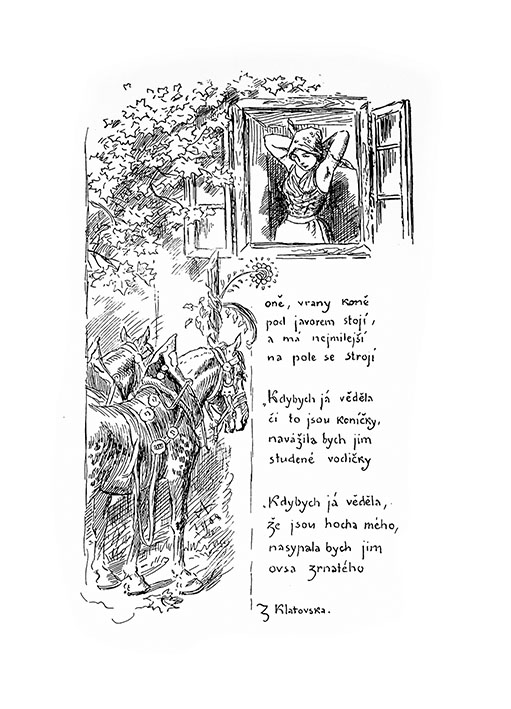 Koně, vrany koně
pod javorem stojí,
a má nejmilejší
na pole se strojí
„Kdybych já věděla
čí to jsou koníčky,
navážila bych jim
studené vodičky
„Kdybych já věděla,
že jsou hocha mého,
nasypala bych jim
ovsa zrnatého
Z Klatovska.